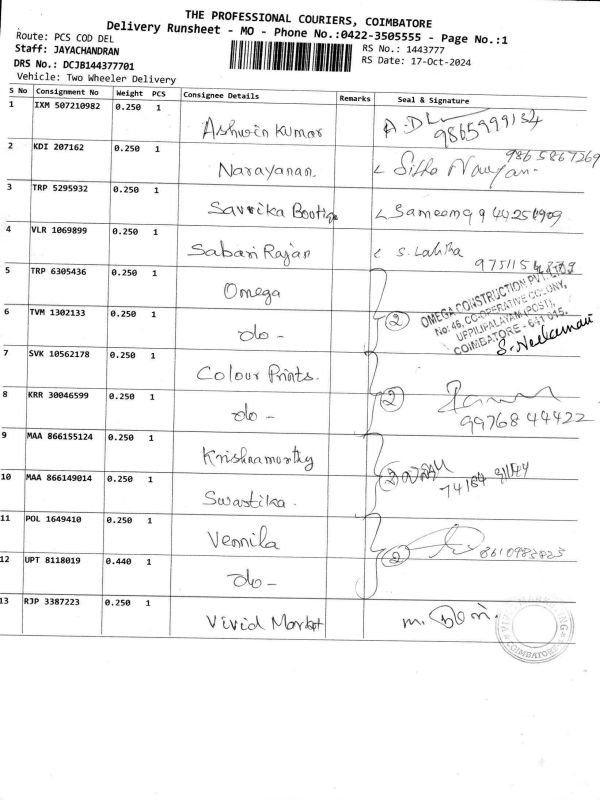 THE PROFESSIONAL COURIERS, COIMBATORE
Delivery Runsheet - MO - Phone No.:0422-3505555 - Page No.:1
Route: PCS COD DEL
RS No.: 1443777
Staff: JAYACHANDRAN
RS Date: 17-Oct-2024
DRS No.: DCJB144377701
Vehicle: Two Wheeler Delivery
S No Consignment No Weight PCS Consignee Details Remarks Seal & Signature
1 IXM 507210982 0.250 1 Ashwin Kumar 9865999134
2 KDI 207162 0.250 1 Narayanan.
3 TRP 5295932 0.250 1
4 VLR 1069899 0.250 1 Sabari Rajan
5 TRP 6305436 0.250 1 Omega
OMEGA CONSTRUCTION PVT. LTD.
No: 46, CO-OPERATIVE COLONY,
UPPILIPALAYAM (POST),
COIMBATORE - 641 015.
6 TVM 1302133 0.250 1 do - 2
7 SVK 10562178 0.250 1 Colour Prints.
8 KRR 30046599 0.250 1 do - 2 99768 44422
9 MAA 866155124 0.250 1 Krishnamorthy
10 MAA 866149014 0.250 1 Swastika. 2
11 POL 1649410 0.250 1 Vennila
12 UPT 8118019 0.440 1 do - 2
13 RJP 3387223 0.250 1 Vivid Market
COIMBATORE